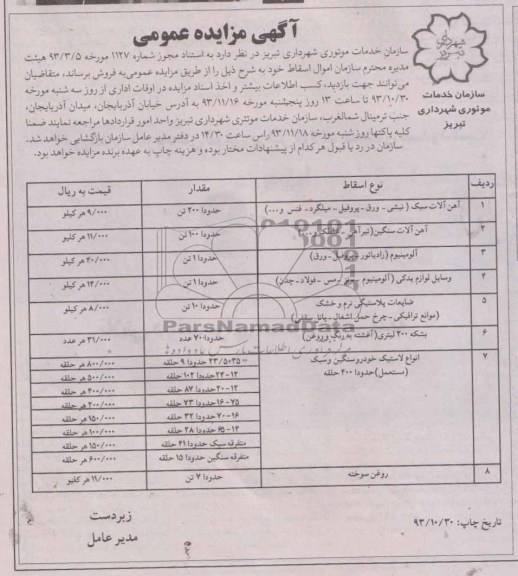 آگهی مزایده عمومی
سازمان خدمات موتوری شهرداری تبریز در نظر دارد به استناد مجوز شماره ۱۱۲۷ مورخه ۹۳/۳/۵ هیئت
مدیره محترم سازمان اموال اسقاط خود به شرح ذیل را از طریق مزایده عمومی به فروش برساند، متقاضیان
می‌توانند جهت بازدید، کسب اطلاعات بیشتر و اخذ اسناد مزایده در اوقات اداری از روز سه شنبه مورخه
۹۳/۱۰/۳۰ تا ساعت ۱۳ روز پنجشنبه مورخه ۹۳/۱۱/۱۶ به آدرس خیابان آذربایجان، میدان آذربایجان،
جنب ترمینال شمالغرب، سازمان خدمات موتوری شهرداری تبریز واحد امور قراردادها مراجعه نمایند ضمنا
کلیه پاکتها روز شنبه مورخه ۹۳/۱۱/۱۸ راس ساعت ۱۴/۳۰ در دفتر مدیر عامل سازمان بازگشایی خواهد شد.
سازمان در رد یا قبول هر کدام از پیشنهادات مختار بوده و هزینه چاپ به عهده برنده مزایده خواهد بود.
سازمان خدمات
موتوری شهرداری
تبریز
ردیف نوع اسقاط مقدار قیمت به ریال
۱ آهن آلات سبک ( نبشی - ورق - پروفیل - میلگرد - فنس و...) حدودا ۲۰۰ تن ۹/۰۰۰ هر کیلو
۲ آهن آلات سنگین (تیرآهن - و...) حدودا ۱۰۰ تن ۱۱/۰۰۰ هر کلیو
۳ آلومینیوم (رادیاتور - پروفیل - ورق) حدودا ۱ تن ۴۰/۰۰۰ هر کیلو
۴ وسایل لوازم یدکی (آلومینیوم - مس - فولاد - چدن) حدودا ۱ تن ۱۴/۰۰۰ هر کیلو
۵ ضایعات پلاستیکی نرم و خشک حدودا ۱۰ تن ۸/۰۰۰ هر کیلو
(موانع ترافیکی - چرخ حمل اشغال - )
۶ بشکه ۲۰۰ لیتری (آغشته به رنگ وروغن) حدودا ۷۰ عدد ۳۱/۰۰۰ هر عدد
۷ انواع لاستیک خودرو سنگین و سبک ۲۳/۵۰۳۵ حدودا ۹ حلقه ۸۰۰/۰۰۰ هر حلقه
(مستعمل) حدودا ۴۰۰ حلقه ۱۲-۲۴ حدودا ۱۰۴ حلقه ۵۰۰/۰۰۰ هر حلقه
۱۲-۲۰ حدودا ۸۷ حلقه ۴۰۰/۰۰۰ هر حلقه
۷۵-۱۶ حدودا ۷۳ حلقه ۲۰۰/۰۰۰ هر حلقه
۷۰-۱۶ حدودا ۳۲ حلقه ۱۵۰/۰۰۰ هر حلقه
۶۵-۱۴ حدودا ۲۸ حلقه ۱۰۰/۰۰۰ هر حلقه
متفرقه سبک حدودا ۴۱ حلقه ۱۵۰/۰۰۰ هر حلقه
متفرقه سنگین حدودا ۱۵ حلقه ۶۰۰/۰۰۰ هر حلقه
۸ روغن سوخته حدودا ۷ تن ۱۱/۰۰۰ هر کلیو
ParsNamadData
تاریخ چاپ: ۹۳/۱۰/۳۰
زبردست
مدیر عامل